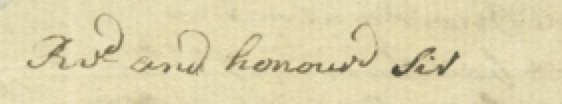 Revd and honourd Sir